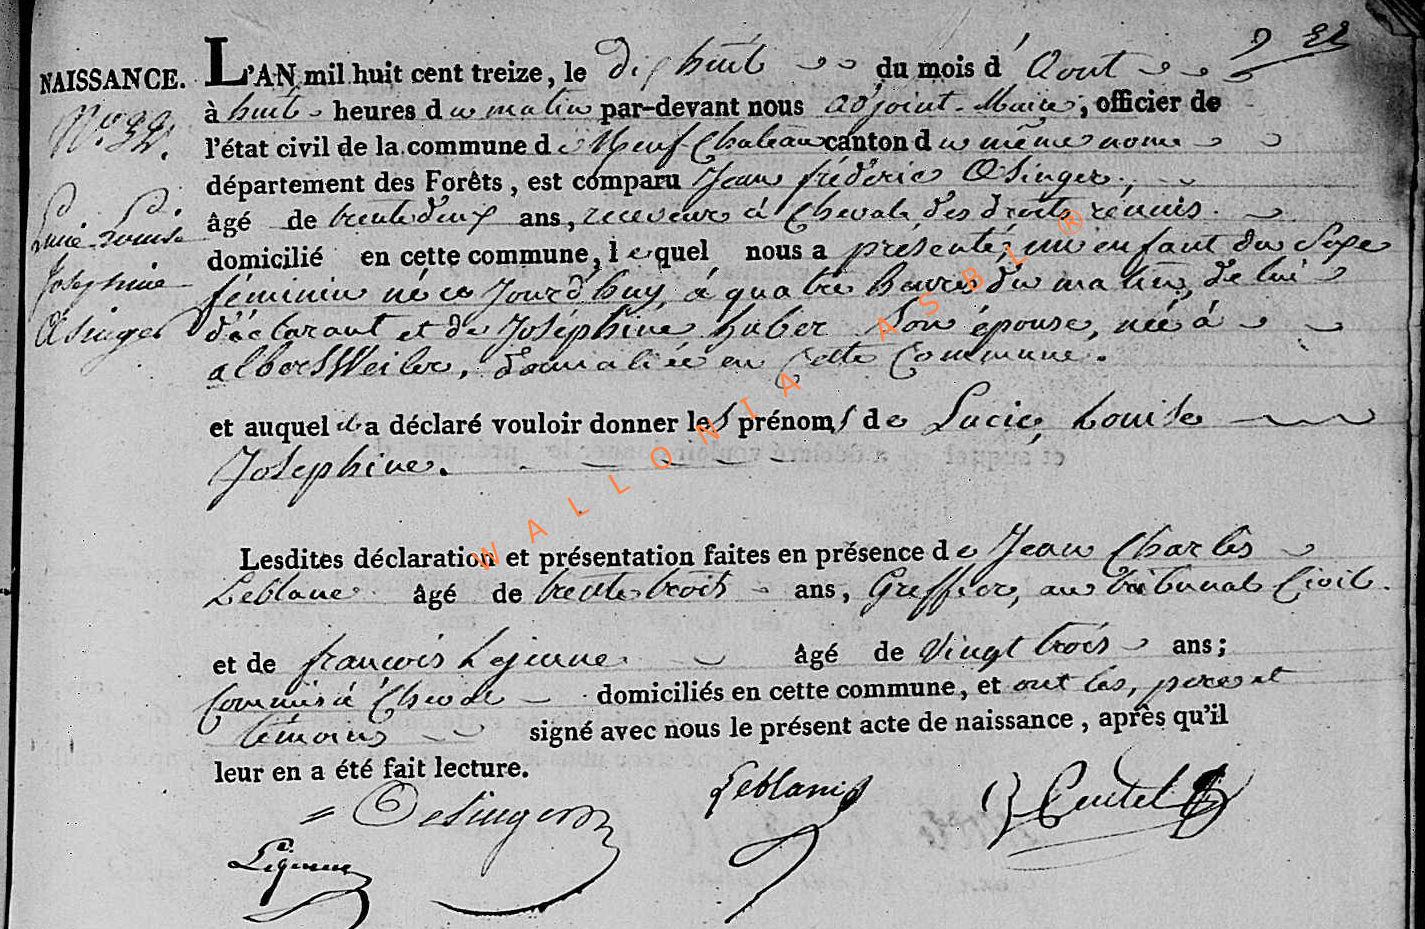 NAISSANCE.
L'AN mil huit cent treize, le dix huit du mois d' Aout
à huit heures du matin par-devant nous adjoint-Maire, officier de
l'état civil de la commune de Neuf-Chateau canton du même nom
département des Forêts, est comparu Jean fréderic Œsinger,
âgé de trente deux ans, receveur à Cheval des droits réunis.
domicilié en cette commune, lequel nous a présenté, un enfant du Sexe
féminin né ce Jourd'huy, à quatre heures du matin, de lui
déclarant et de Joséphine huber Son épouse, née à
albersWeiler, domiciliée en Cette Commune.
et auquel il a déclaré vouloir donner les prénoms de Lucie, Louise
Josephine.
Lesdites déclaration et présentation faites en présence de Jean Charles
Leblanc âgé de trente trois ans, Greffier, au tribunal Civil.
et de françois Lejeune. âgé de Vingt trois ans;
Commis à Cheval domiciliés en cette commune, et ont les, pere et
témoins signé avec nous le présent acte de naissance, après qu'il
leur en a été fait lecture.
N° 32.
Lucie Louise
Josephine
Œsinger
Oesinger
Leblanc
Lejeune
WALLONIA ASBL ®